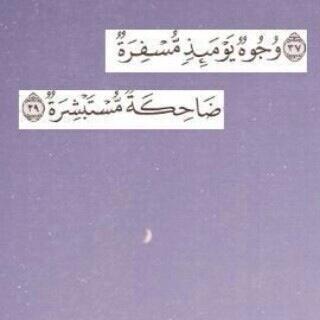 ٣٧ وُجُوهٌ يَوْمَئِذٍ مُّسْفِرَةٌ
ضَاحِكَةٌ مُّسْتَبْشِرَةٌ ٣٩